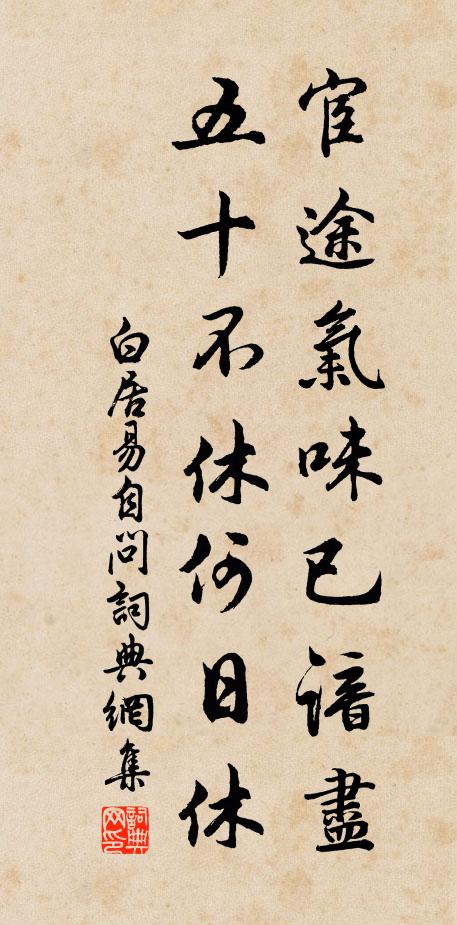 宦途氣味已諳盡
五十不休何日休
白居易自問詞典網集
詞典网印